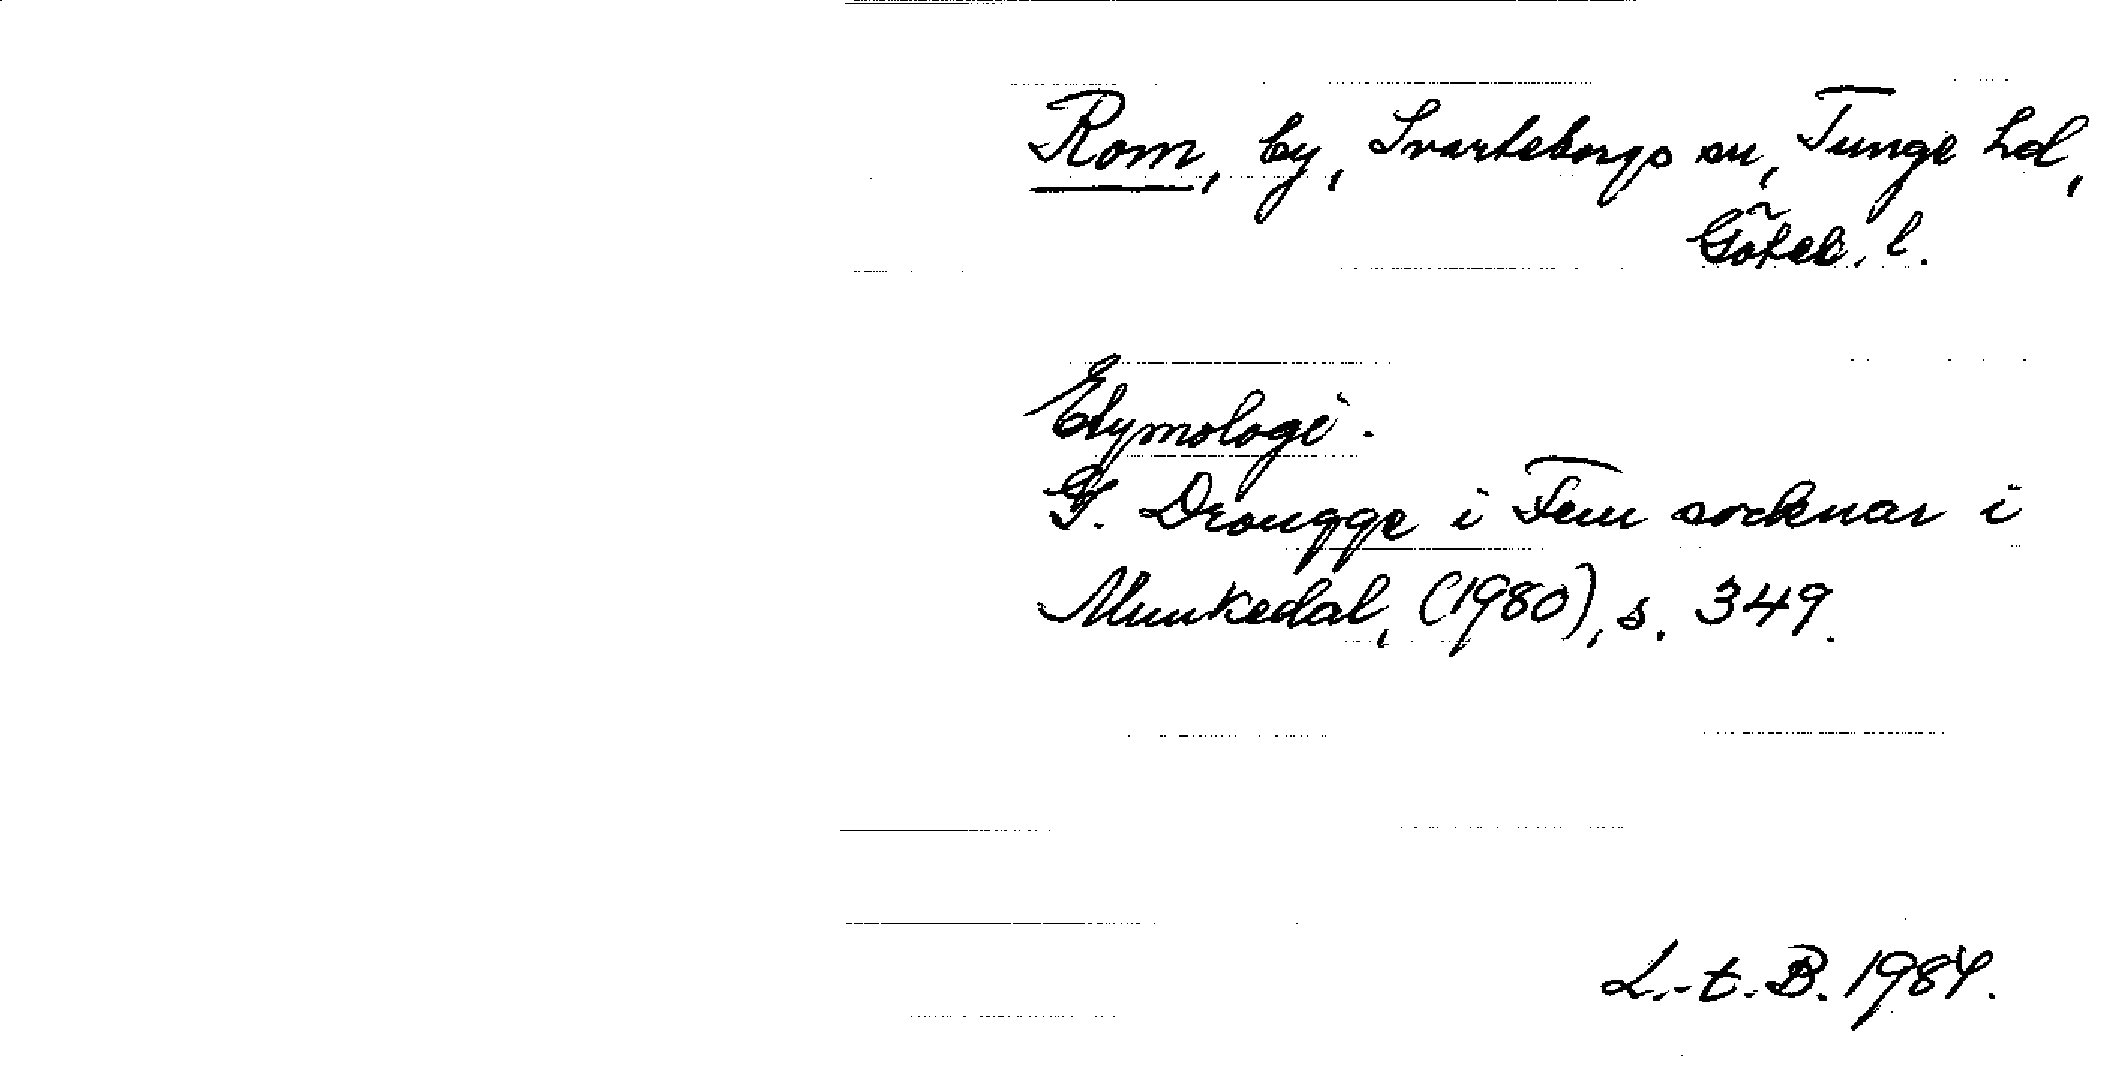 Rom, by, Svarteborgs sn, Tunge hd,
Göteb. l.
Etymologi.
G. Drougge i Fem socknar i
Munkedal, (1980), s. 349.
L.-t. B. 1984.